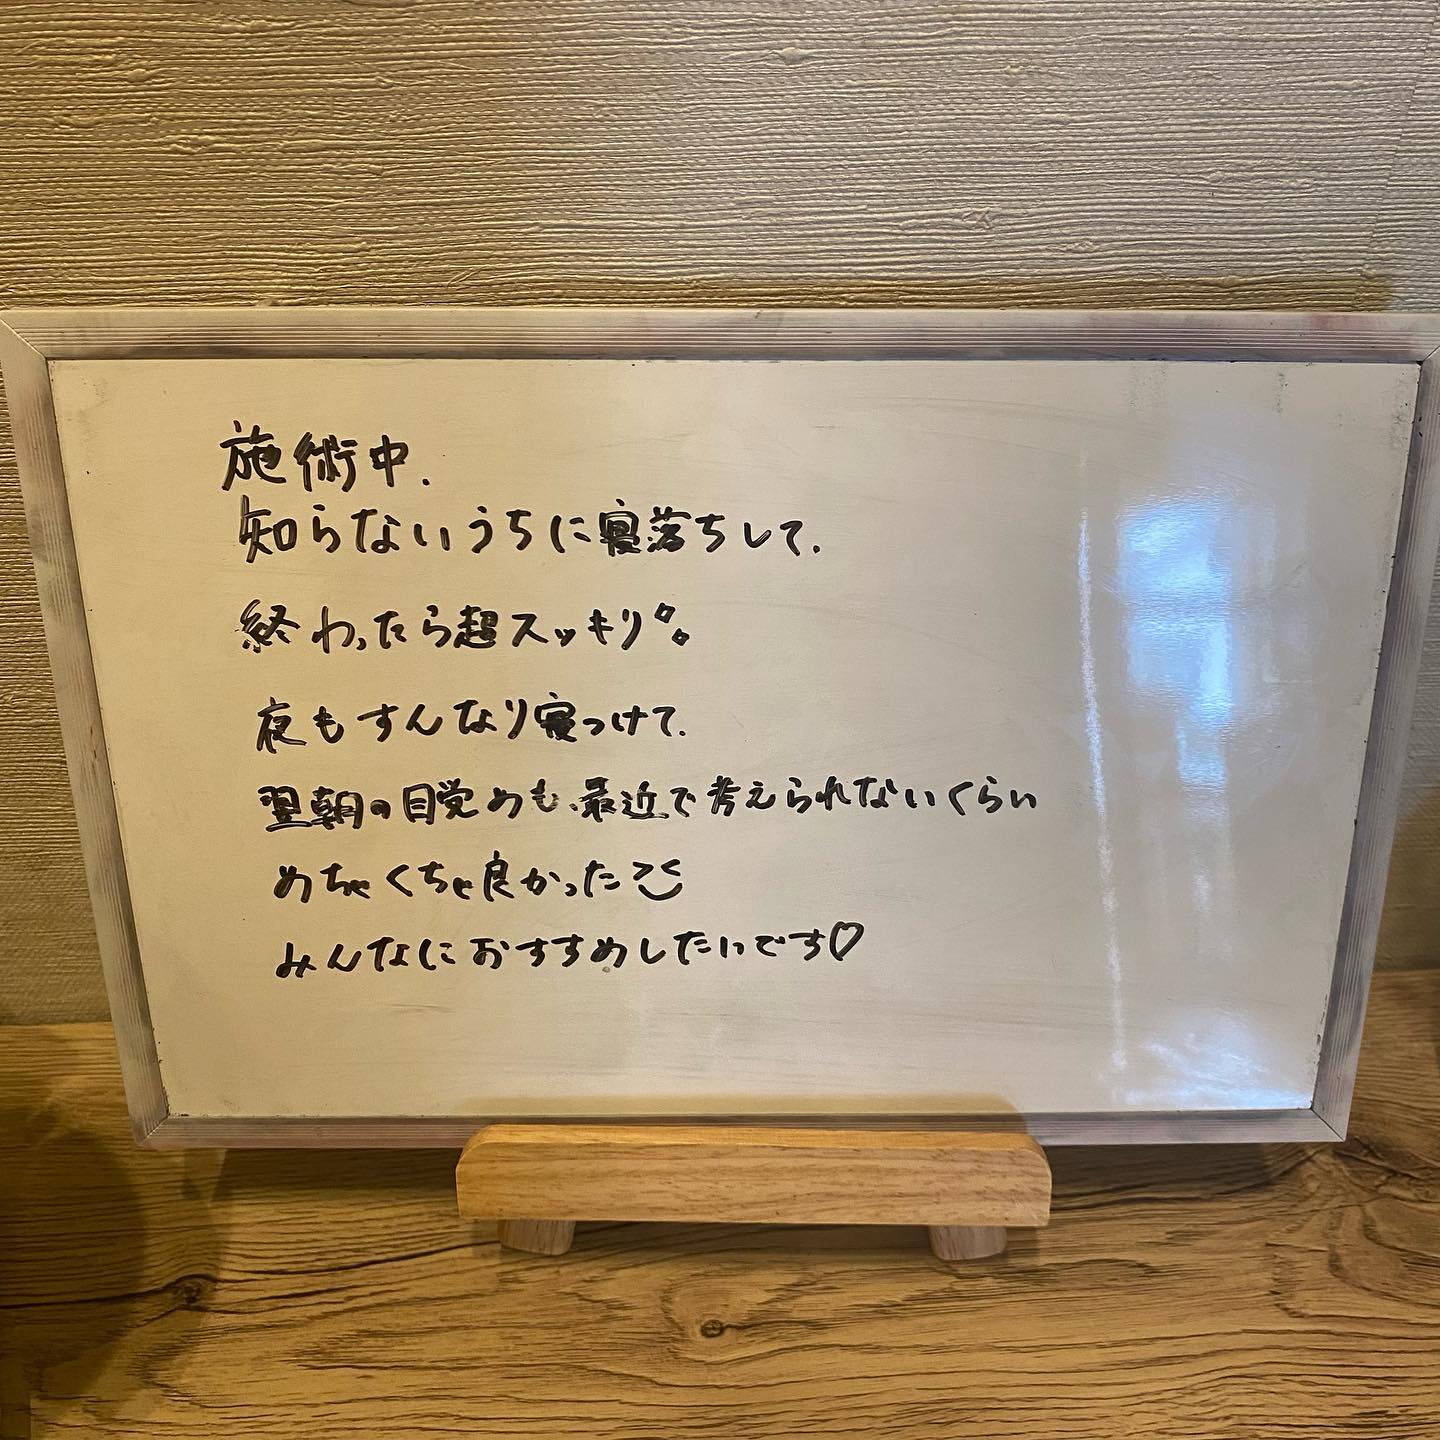 施術中、
知らないうちに寝落ちして、
終わったら超スッキリ
夜もすんなり寝つけて、
翌朝の目覚めも、最近で考えられないくらい
めちゃくちゃ良かった
みんなにおすすめしたいです♡